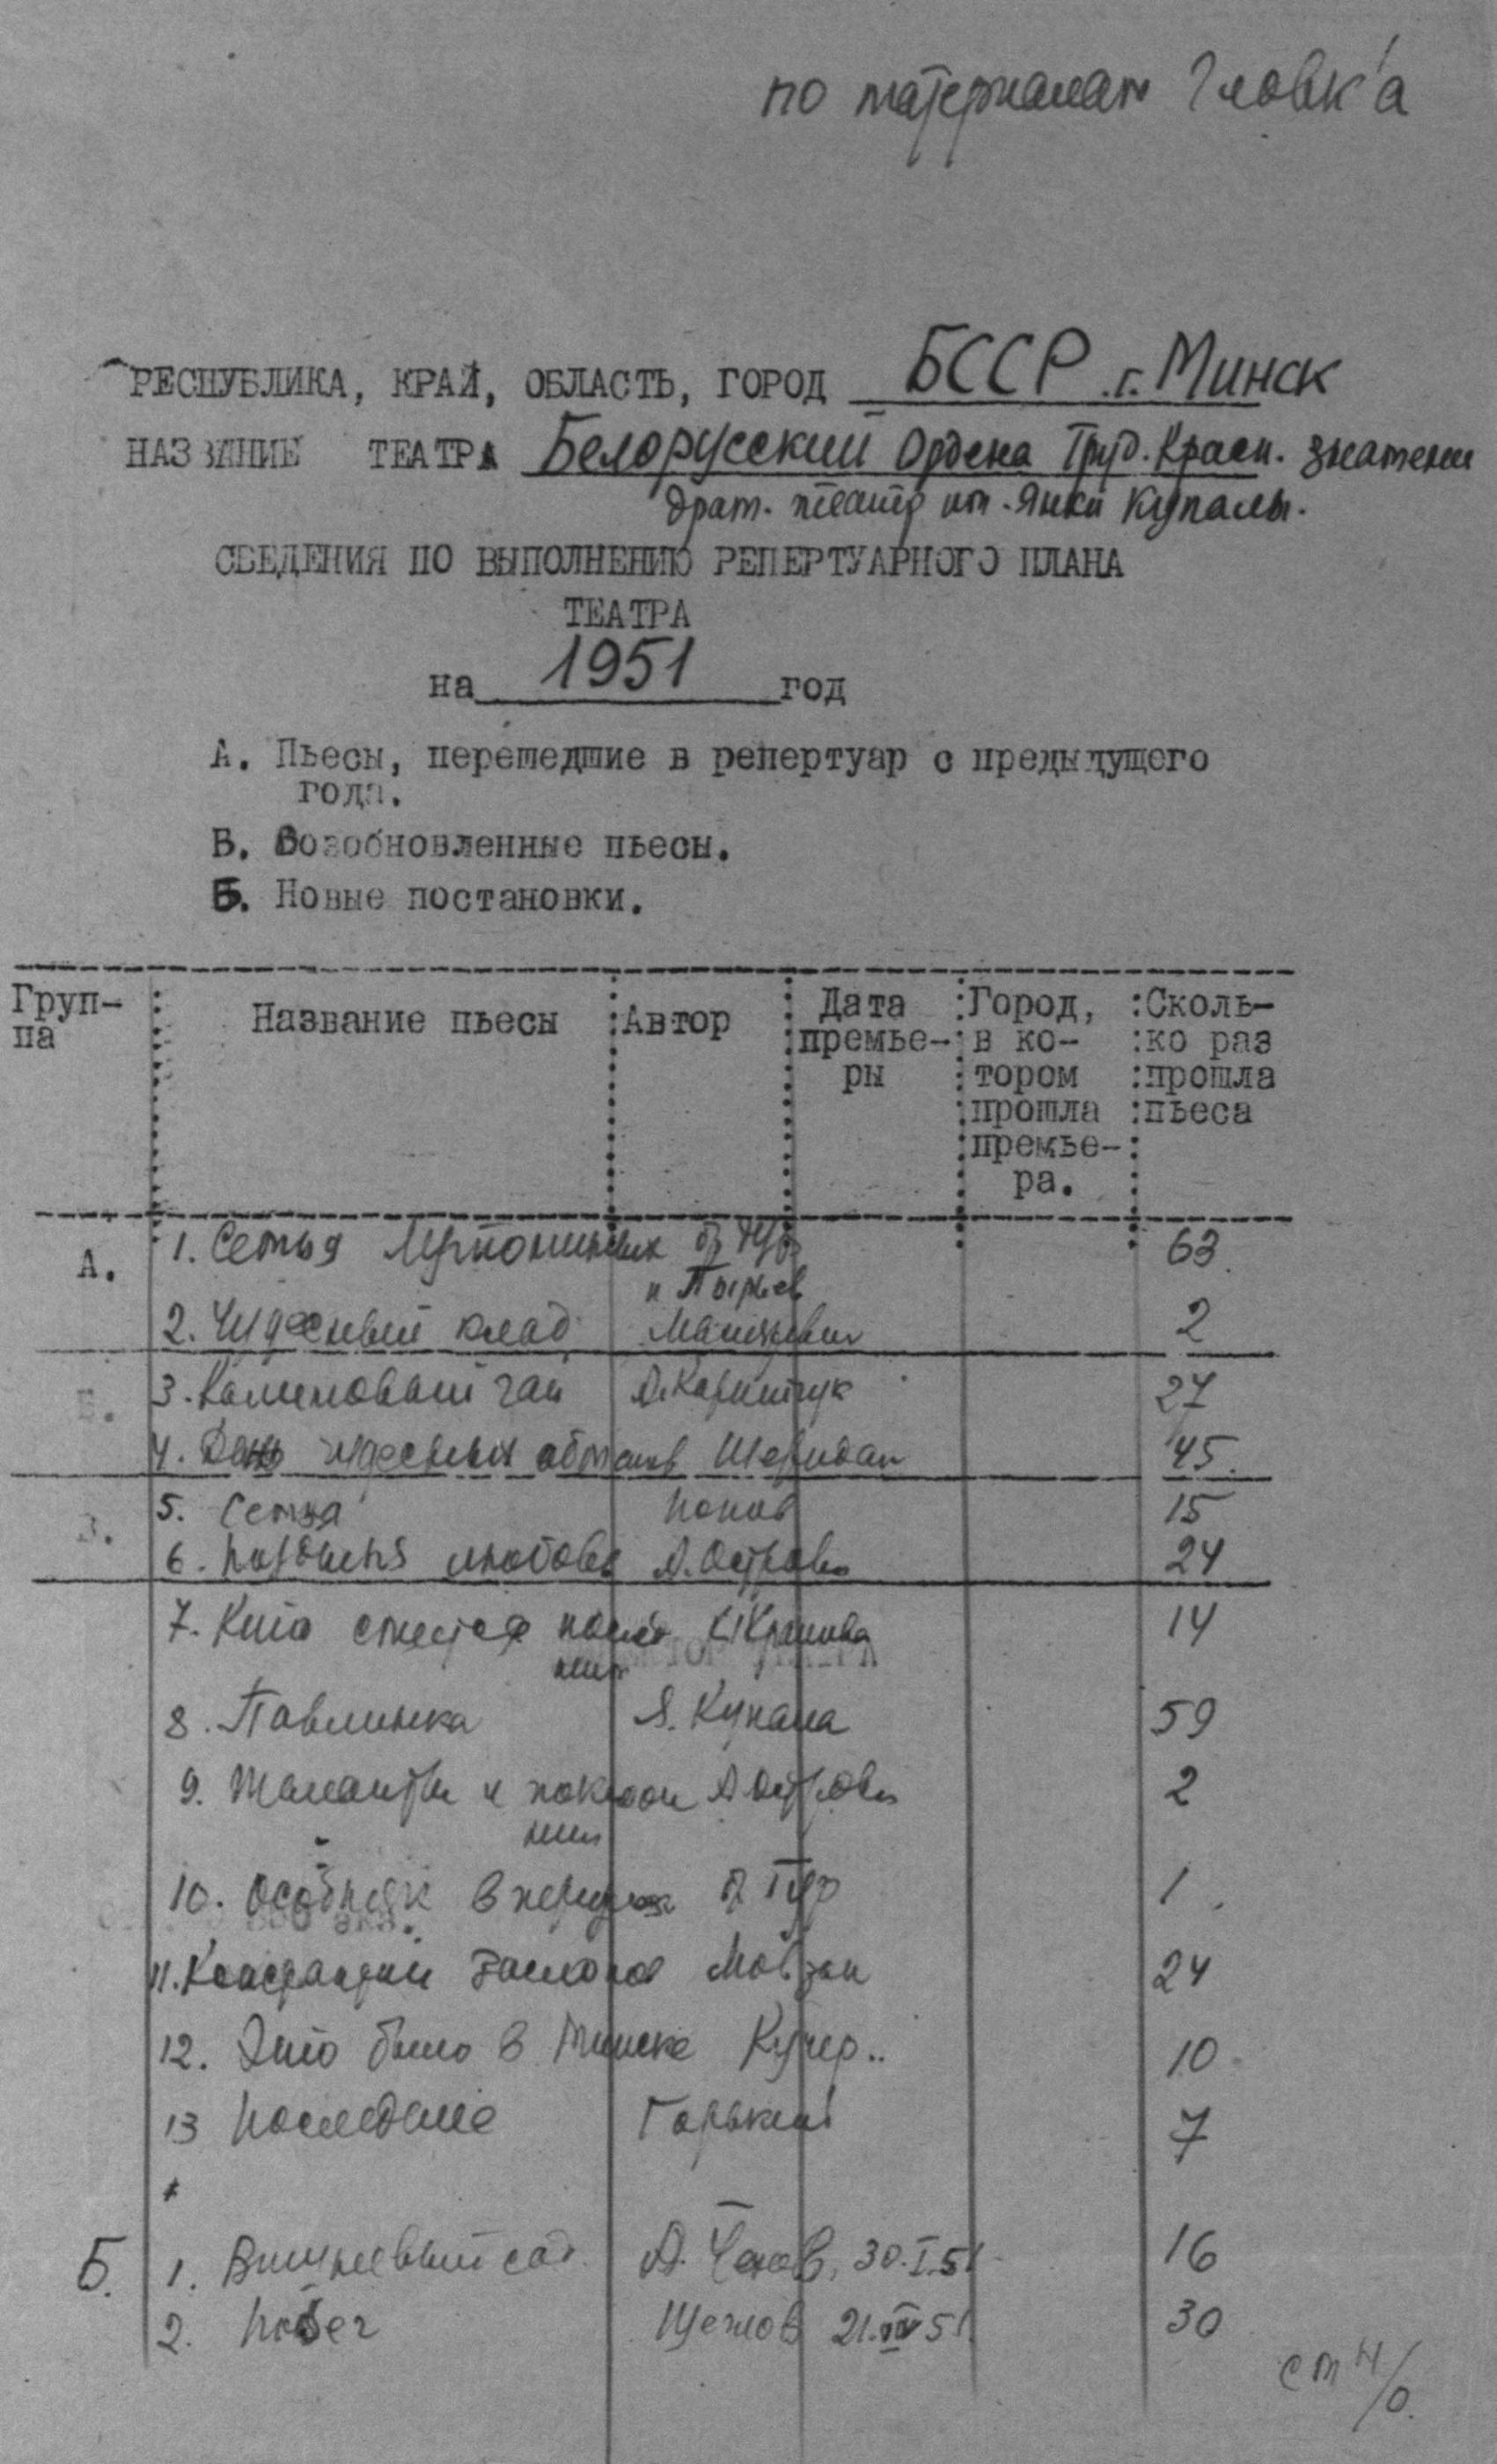 по материалам Главк'а
РЕСПУБЛИКА, КРАЙ, ОБЛАСТЬ, ГОРОД БССР г. Минск
НАЗВАНИЕ ТЕАТРА Белорусский Ордена Труд. Красн. знамени
драм. театр им. Янки Купалы.
СВЕДЕНИЯ ПО ВЫПОЛНЕНИЮ РЕПЕРТУАРНОГО ПЛАНА
ТЕАТРА
на 1951 год
А. Пьесы, перешедшие в репертуар с предыдущего
года.
В. Возобновленные пьесы.
Б. Новые постановки.
Груп-
па
Название пьесы
Автор
Дата
премье-
ры
Город,
в ко-
тором
прошла
премье-
ра.
Сколь-
ко раз
прошла
пьеса
А. 1. Семья Лутониных бр Тур 63
и Пырьев
2. Чудесный клад Маляревич 2
3. Калиновый гай А. Корнейчук 27
4. День чудесных обманов Шеридан 45
5. Семья Попов 15
6. Поздняя любовь А. Островс 24
7. Кто смеется послед К Крапива 14
ним
8. Павлинка Я. Купала 59
9. Таланты и поклон А Островс 2
ники
10. Особняк в переулке бр Тур 1
11. Константин Заслонов Мовзон 24
12. Это было в Минске Кучер.. 10
13 Последние Горький 7
Б. 1. Вишневый сад. А. Чехов, 30.I.51 16
2. Побег Щеглов 21.IV 51. 30
см н/о.